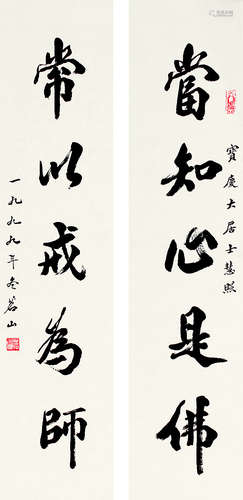 當知心是佛
寶慶大居士慧照
常以戒為師
一九九九年冬茗山